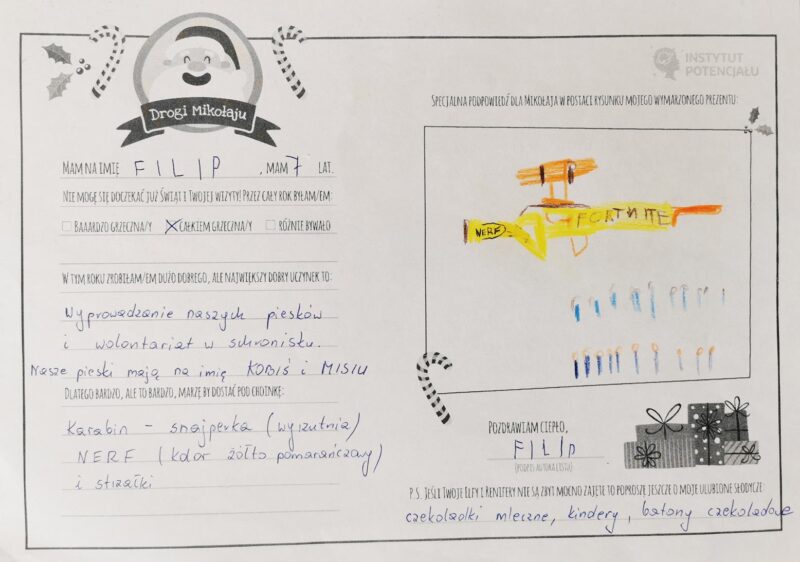 Drogi Mikołaju
MAM NA IMIĘ FILIP, MAM 7 LAT.
NIE MOGĘ SIĘ DOCZEKAĆ JUŻ ŚWIĄT I TWOJEJ WIZYTY! PRZEZ CAŁY ROK BYŁAM/EM:
BAAARDZO GRZECZNA/Y CAŁKIEM GRZECZNA/Y RÓŻNIE BYWAŁO
W TYM ROKU ZROBIŁAM/EM DUŻO DOBREGO, ALE NAJWIĘKSZY DOBRY UCZYNEK TO:
Wyprowadzanie naszych piesków
i wolontariat w schronisku.
Nasze pieski mają na imię KOBIŚ i MISIU
DLATEGO BARDZO, ALE TO BARDZO, MARZĘ BY DOSTAĆ POD CHOINKĘ:
Karabin - snajperka (wyrzutnia)
NERF (kolor żółto pomarańczowy)
i strzałki
INSTYTUT
POTENCJAŁU
SPECJALNA PODPOWIEDŹ DLA MIKOŁAJA W POSTACI RYSUNKU MOJEGO WYMARZONEGO PREZENTU:
FORTNITE
NERF
POZDRAWIAM CIEPŁO,
FILIP
(PODPIS AUTORA LISTU)
P.S. JEŚLI TWOJE ELFY I RENIFERY NIE SĄ ZBYT MOCNO ZAJĘTE TO POPROSZĘ JESZCZE O MOJE ULUBIONE SŁODYCZE:
czekoladki mleczne, kindery, batony czekoladowe